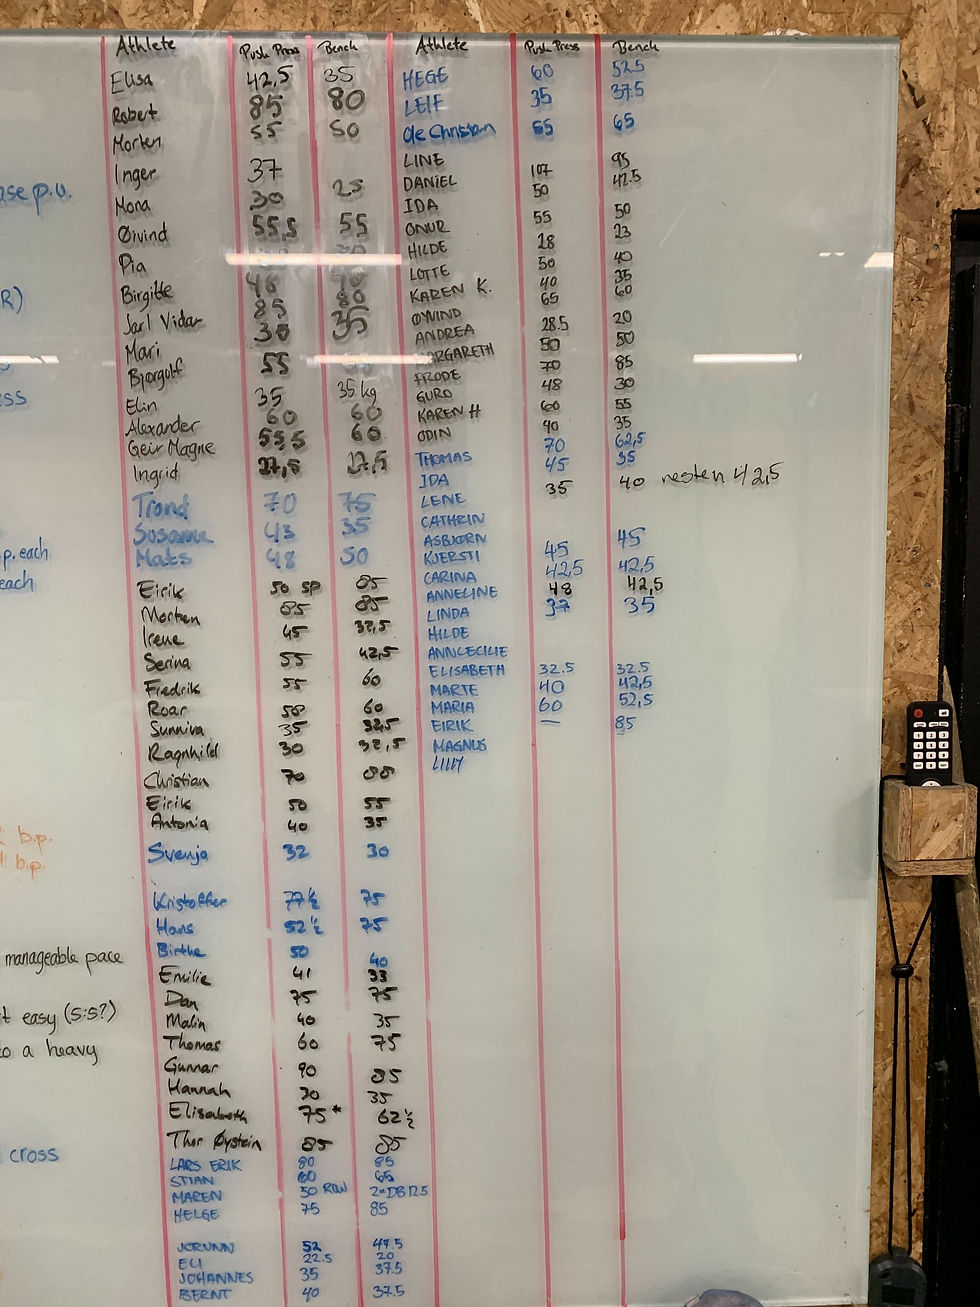 Athlete Push Press Bench
Elisa 42,5 35
Robert 85 80
Morten 55 50
Inger 37
Mona 30 25
Øivind 55,5 55
Pia
Birgitte 48
Jarl Vidar 85 80
Mari 30 35
Bjørgulf 55
Elin 35 35 kg
Alexander 60 60
Geir Magne 55,5 60
Ingrid 27,5 27,5
Trond 70 75
Susanne 43 35
Mats 48 50
Eirik 50 SP 85
Morten 85 85
Irene 45 32,5
Serina 55 42,5
Fredrik 55 60
Roar 50 60
Sunniva 35 32,5
Ragnhild 30 32,5
Christian 70 80
Eirik 50 55
Antonia 40 35
Svenja 32 30
Kristoffer 77 ½ 75
Hans 52 ½ 75
Birthe 50 40
Emilie 41 33
Dan 75 75
Malin 40 35
Thomas 60 75
Gunnar 90 85
Hannah 30 35
Elisabeth 75* 62 ½
Thor Øystein 85 85
LARS ERIK 80 85
STIAN 60 65
MAREN 50 ROW 2*DB 12.5
HELGE 75 85
JORUNN 52 47.5
ELI 22.5 20
JOHANNES 35 37.5
BERNT 40 37.5
Athlete Push Press Bench
HEGE 60 52.5
LEIF 35 37.5
Ole Christian 65 65
LINE
DANIEL 107 95
IDA 50 42.5
ONUR
HILDE 55 50
LOTTE 28 23
KAREN K. 50 40
ØYVIND 40 35
ANDREA 65 60
MARGARETH 28.5 20
FRODE 50 50
GURO 70 85
KAREN H 48 30
ODIN 60 55
THOMAS 40 35
IDA 70 62,5
LENE 45 35
CATHRIN 35 40 nesten 42,5
ASBJØRN
KJERSTI 45 45
CARINA 42,5 42,5
ANNELINE 48 42,5
LINDA 37 35
HILDE
ANNCECILIE
ELISABETH 32.5 32.5
MARTE 40 42,5
MARIA 60 52,5
EIRIK — 85
MAGNUS
LILLY
ase p.u.
R)
ess
p. each
each
b.p.
b.p.
manageable pace
t easy (5:5?)
to a heavy
cross